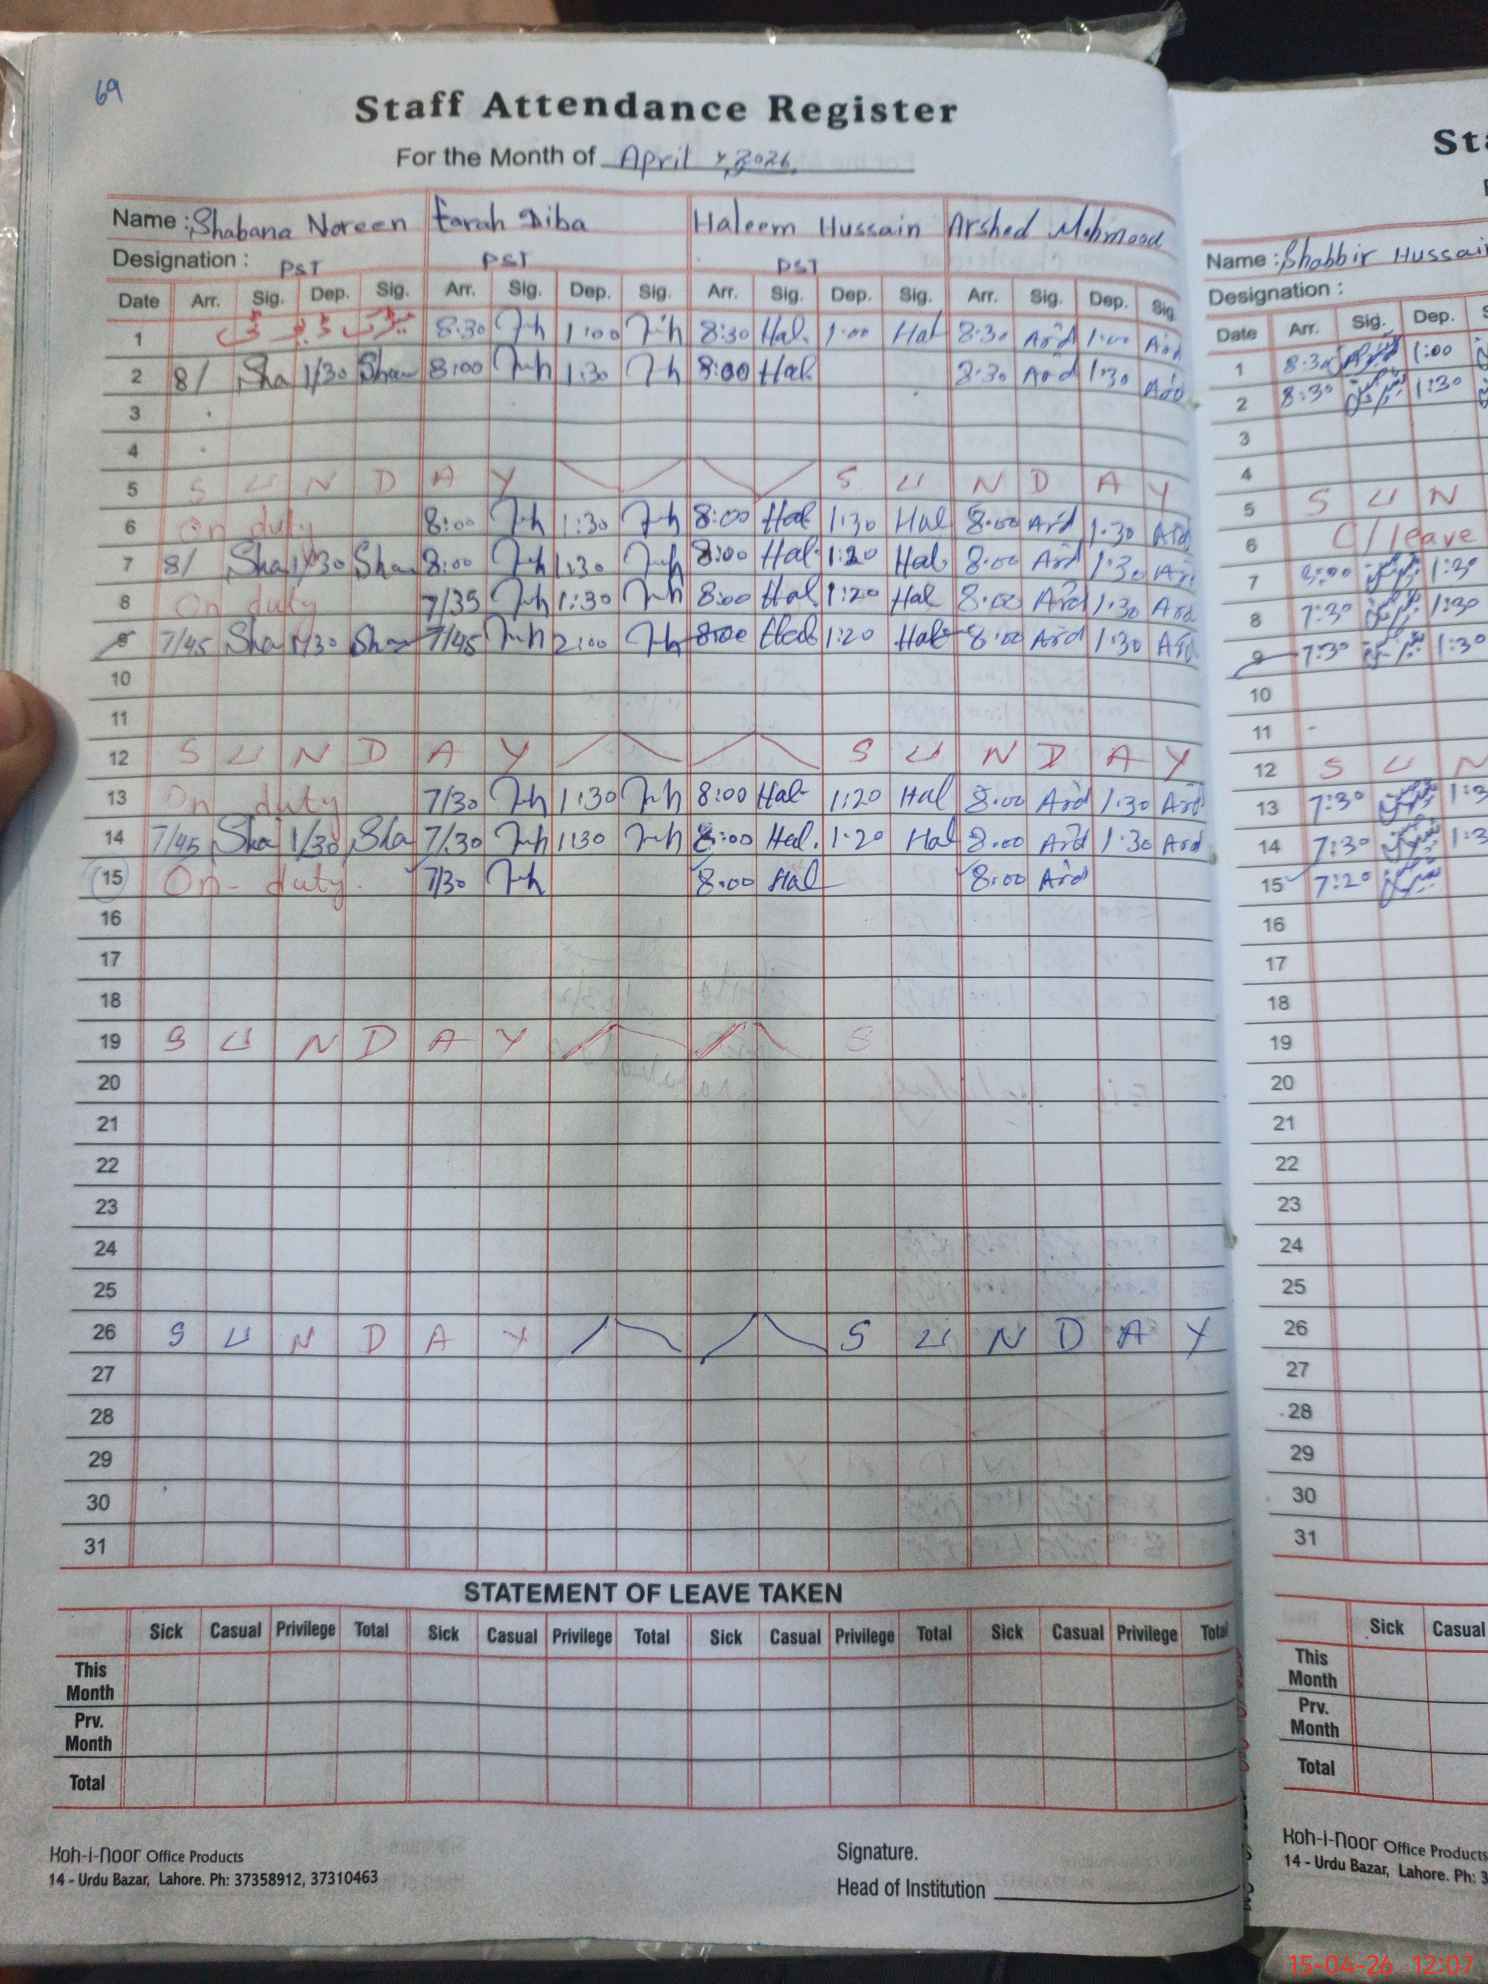 69
Staff Attendance Register
For the Month of April, 2026.
Name : Shabana Noreen Farah Diba Haleem Hussain Arshed Mehmood
Designation : PST PST PST
Date Arr. Sig. Dep. Sig. Arr. Sig. Dep. Sig. Arr. Sig. Dep. Sig. Arr. Sig. Dep. Sig.
1 8:30 1:00 8:30 Hal. 1:00 Hal 8:30 Ard 1:00 Ard
2 8/ Sha 1/30 Sha 8:00 1:30 8:00 Hal 8:30 Ard 1:30 Ard
3
4
5 S U N D A Y S U N D A Y
6 On duty 8:00 1:30 8:00 Hal 1:30 Hal 8:00 Ard 1:30 Ard
7 8/ Sha 1/30 Sha 8:00 1:30 8:00 Hal 1:20 Hal 8:00 Ard 1:30 Ard
8 On duty 7/35 1:30 8:00 Hal 1:20 Hal 8:00 Ard 1:30 Ard
9 7/45 Sha 1/30 Sha 7/45 2:00 8:00 Hal 1:20 Hal 8:00 Ard 1:30 Ard
10
11
12 S U N D A Y S U N D A Y
13 On duty 7/30 1:30 8:00 Hal 1:20 Hal 8:00 Ard 1:30 Ard
14 7/45 Sha 1/30 Sha 7/30 1:30 8:00 Hal. 1:20 Hal 8:00 Ard 1:30 Ard
15 On duty. 7/30 8:00 Hal 8:00 Ard
16
17
18
19 S U N D A Y S
20
21
22
23
24
25
26 S U N D A Y S U N D A Y
27
28
29
30
31
STATEMENT OF LEAVE TAKEN
Sick Casual Privilege Total Sick Casual Privilege Total Sick Casual Privilege Total Sick Casual Privilege Total
This Month
Prv. Month
Total
Koh-i-Noor Office Products
14 - Urdu Bazar, Lahore. Ph: 37358912, 37310463
Signature.
Head of Institution
Name : Shabbir Hussain
Designation :
Date Arr. Sig. Dep.
1 8:30 1:00
2 8:30 1:30
3
4
5 S U N
6 C/leave
7 8:00 1:30
8 7:30 1:30
9 7:30 1:30
10
11
12 S U N
13 7:30
14 7:30
15 7:20
16
17
18
19
20
21
22
23
24
25
26
27
28
29
30
31
Sick Casual
This Month
Prv. Month
Total
Koh-i-Noor Office Products
14 - Urdu Bazar, Lahore. Ph:
15-04-26 12:07